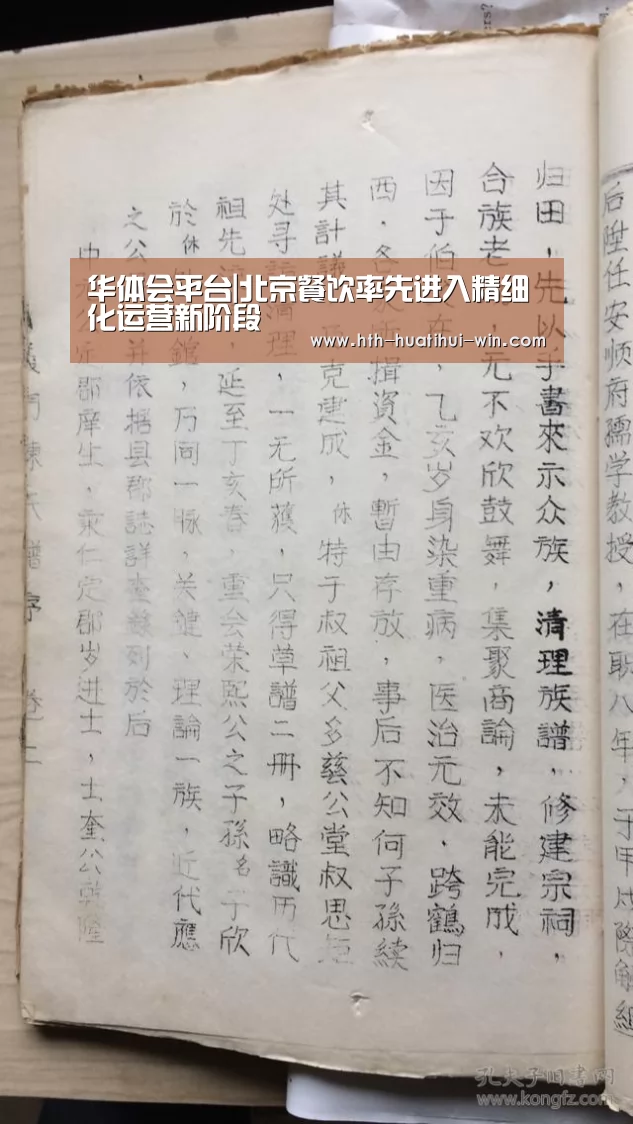 后陞任安顺府儒学教授，在职八年，于甲戌際解組
归田，先以手書來示众族，清理族譜，修建宗祠，
合族老，元不欢欣鼓舞，集聚商論，未能完成，
因于伯在，乙亥岁身染重病，医治元效．跨鶴归
西．各輯資金，暫由存放，事后不知何子孫續
其計議克建成，休特于叔祖父多慈公堂叔思
处寻理，一无所獲，只得草譜二册，略識历代
祖先，延至丁亥春，重会荣熙公之子孫名子欣
於休館，乃同一脉，关键、理論一族，近代應
之公并依据县郡誌詳查錄列於后
公定郡庠生，秉仁定郡岁进士，士奎公乾隆
陳氏譜序 卷二
华体会平台|北京餐饮率先进入精细
化运营新阶段
www.hth-huatihui-win.com
孔夫子旧書网
www.kongfz.com